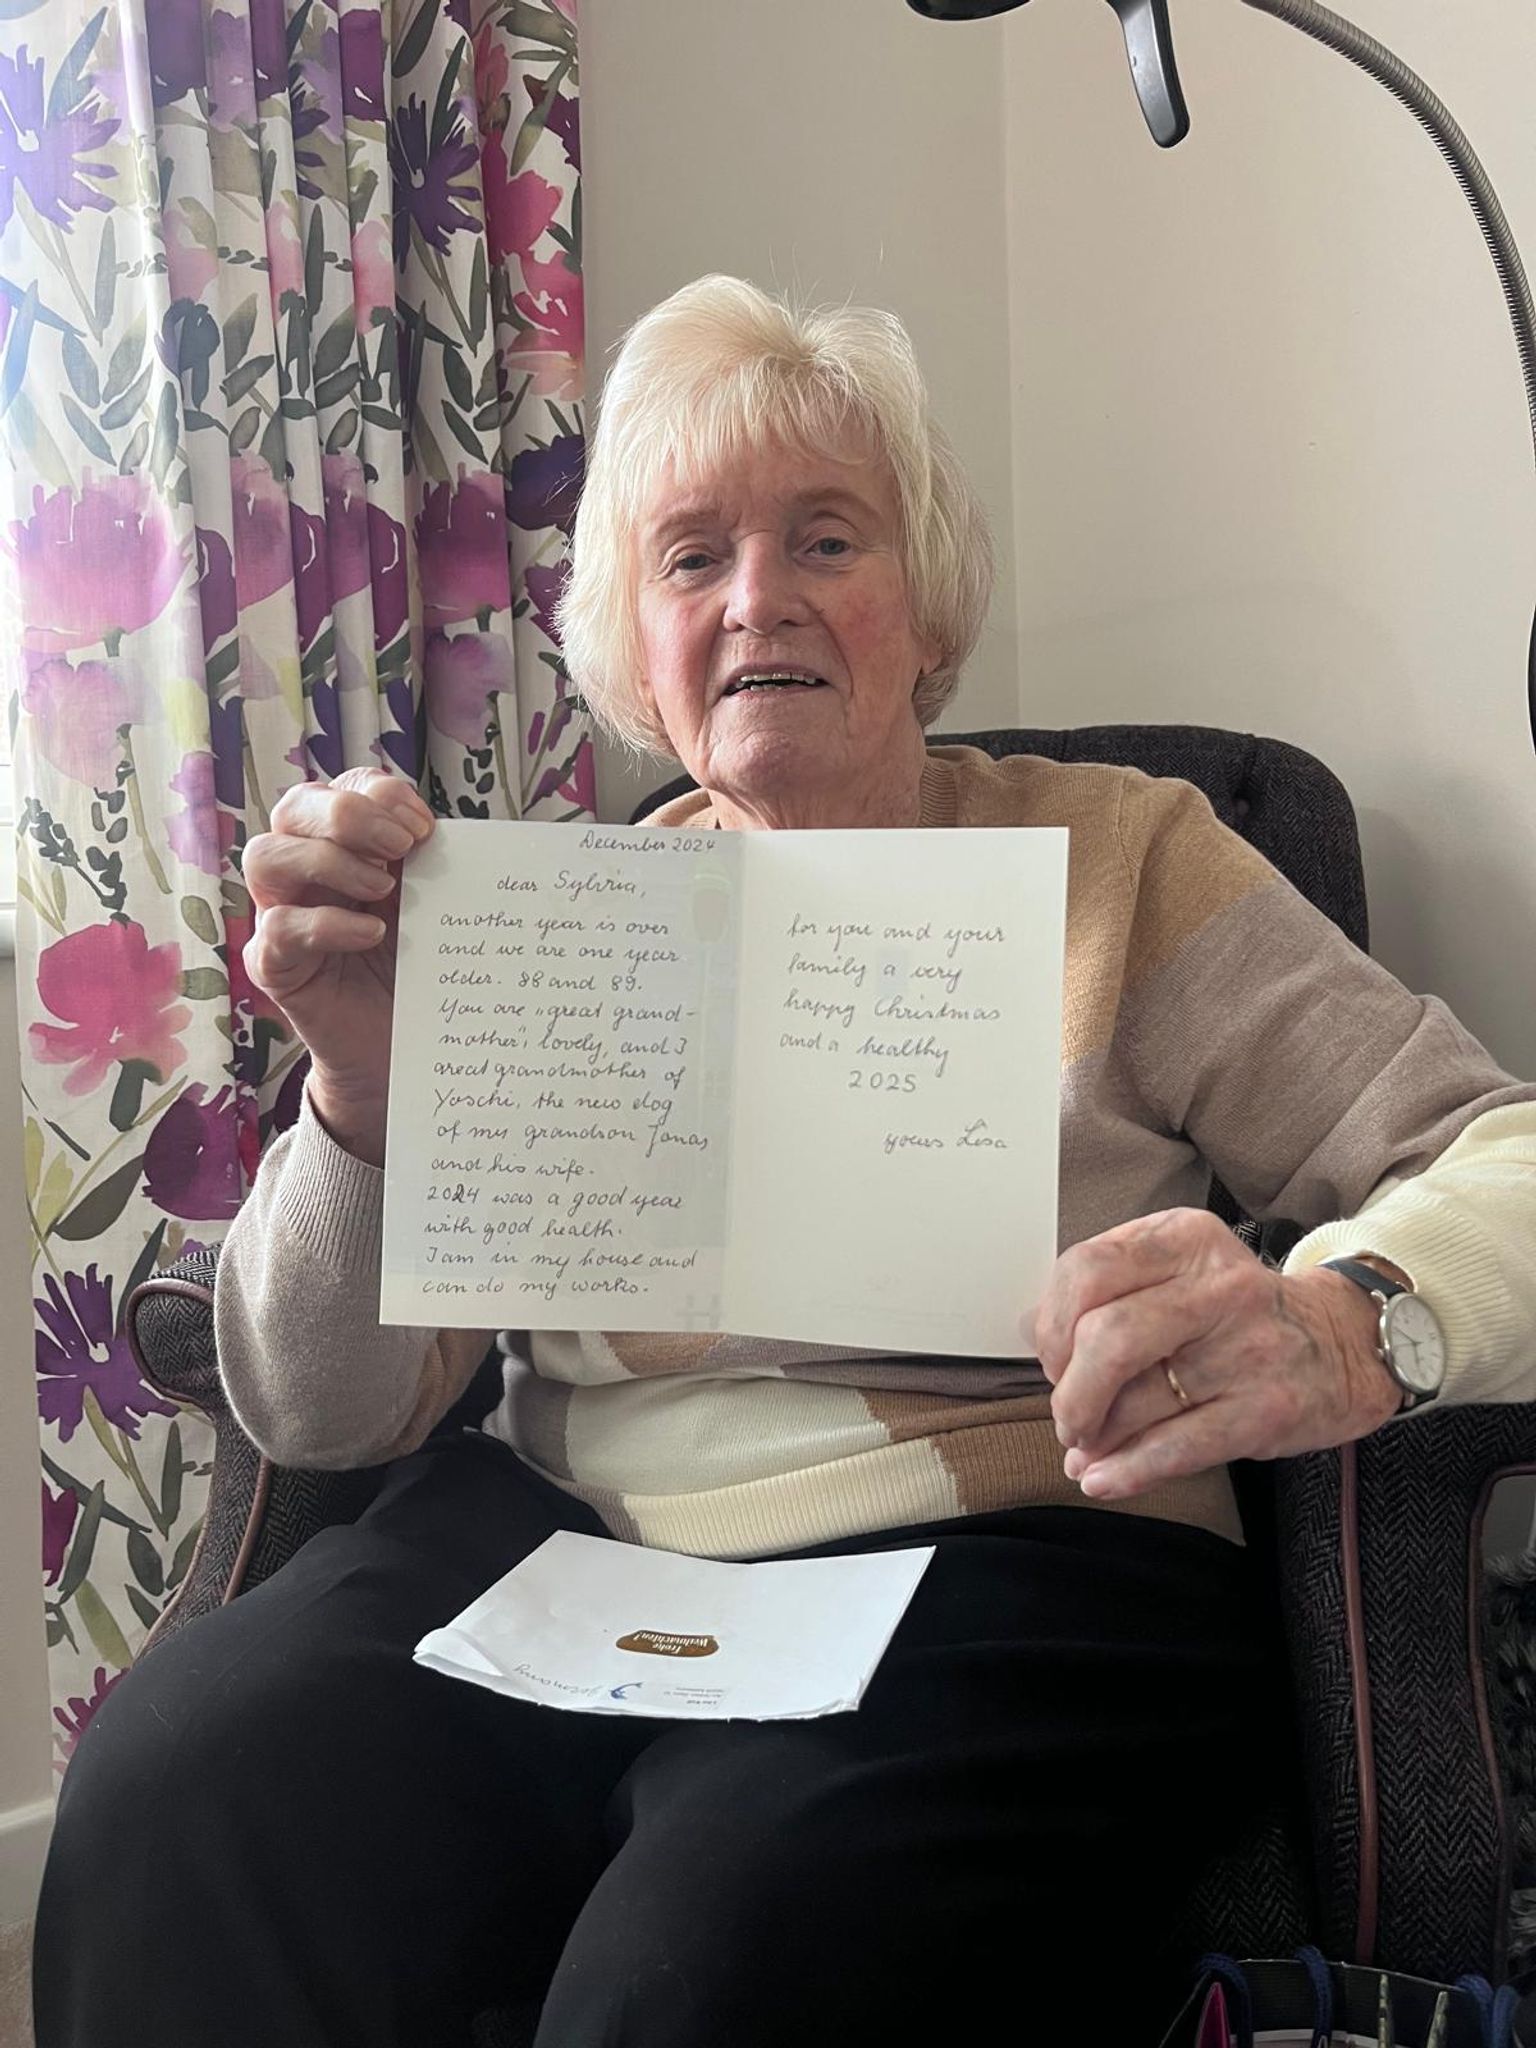 December 2024
dear Sylvia,
another year is over
and we are one year
older. 88 and 89.
You are „great grand-
mother", lovely, and I
great grandmother of
Yoschi, the new dog
of my grandson Jonas
and his wife.
2024 was a good year
with good health.
I am in my house and
can do my works.
for you and your
family a very
happy Christmas
and a healthy
2025
yours Lisa
Frohe
Weihnachten!
germany